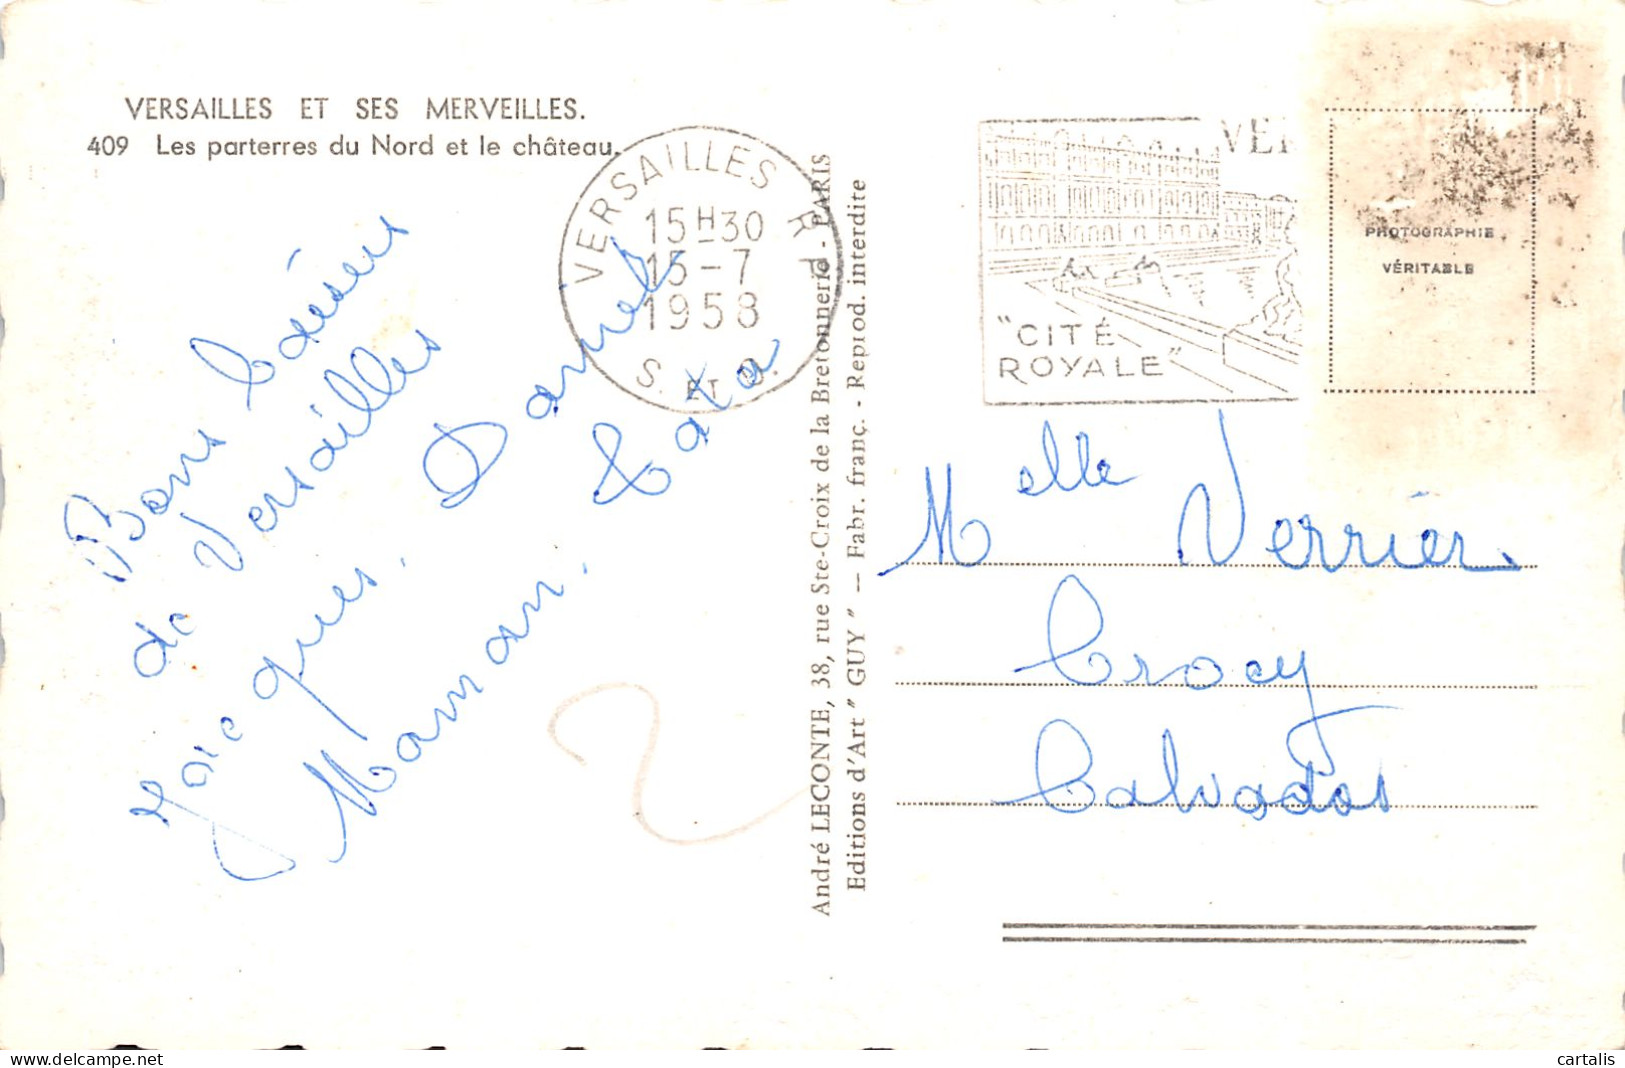 VERSAILLES ET SES MERVEILLES.
409 Les parterres du Nord et le château.
VERSAILLES R.P.
15H30
15-7
1958
S. ET O.
VER
"CITÉ
ROYALE"
PHOTOGRAPHIE
VÉRITABLE
Bons baisers
de Versailles
Jacques. Daniel
Maman.
André LECONTE, 38, rue Ste-Croix de la Bretonnerie - PARIS
Editions d'Art "GUY" — Fabr. franç. - Reprod. interdite
Melle Verrier
Crocy
Calvados
2
cartalis
www.delcampe.net